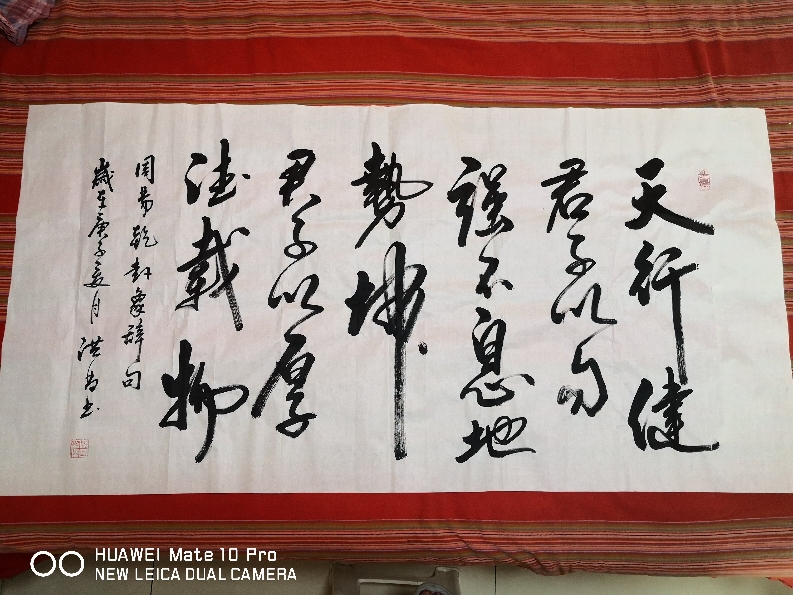 天行健
君子以自
强不息地
勢坤
君子以厚
德載物
周易乾卦象辞句
歲在庚子夏月洪昌书
HUAWEI Mate 10 Pro
NEW LEICA DUAL CAMERA